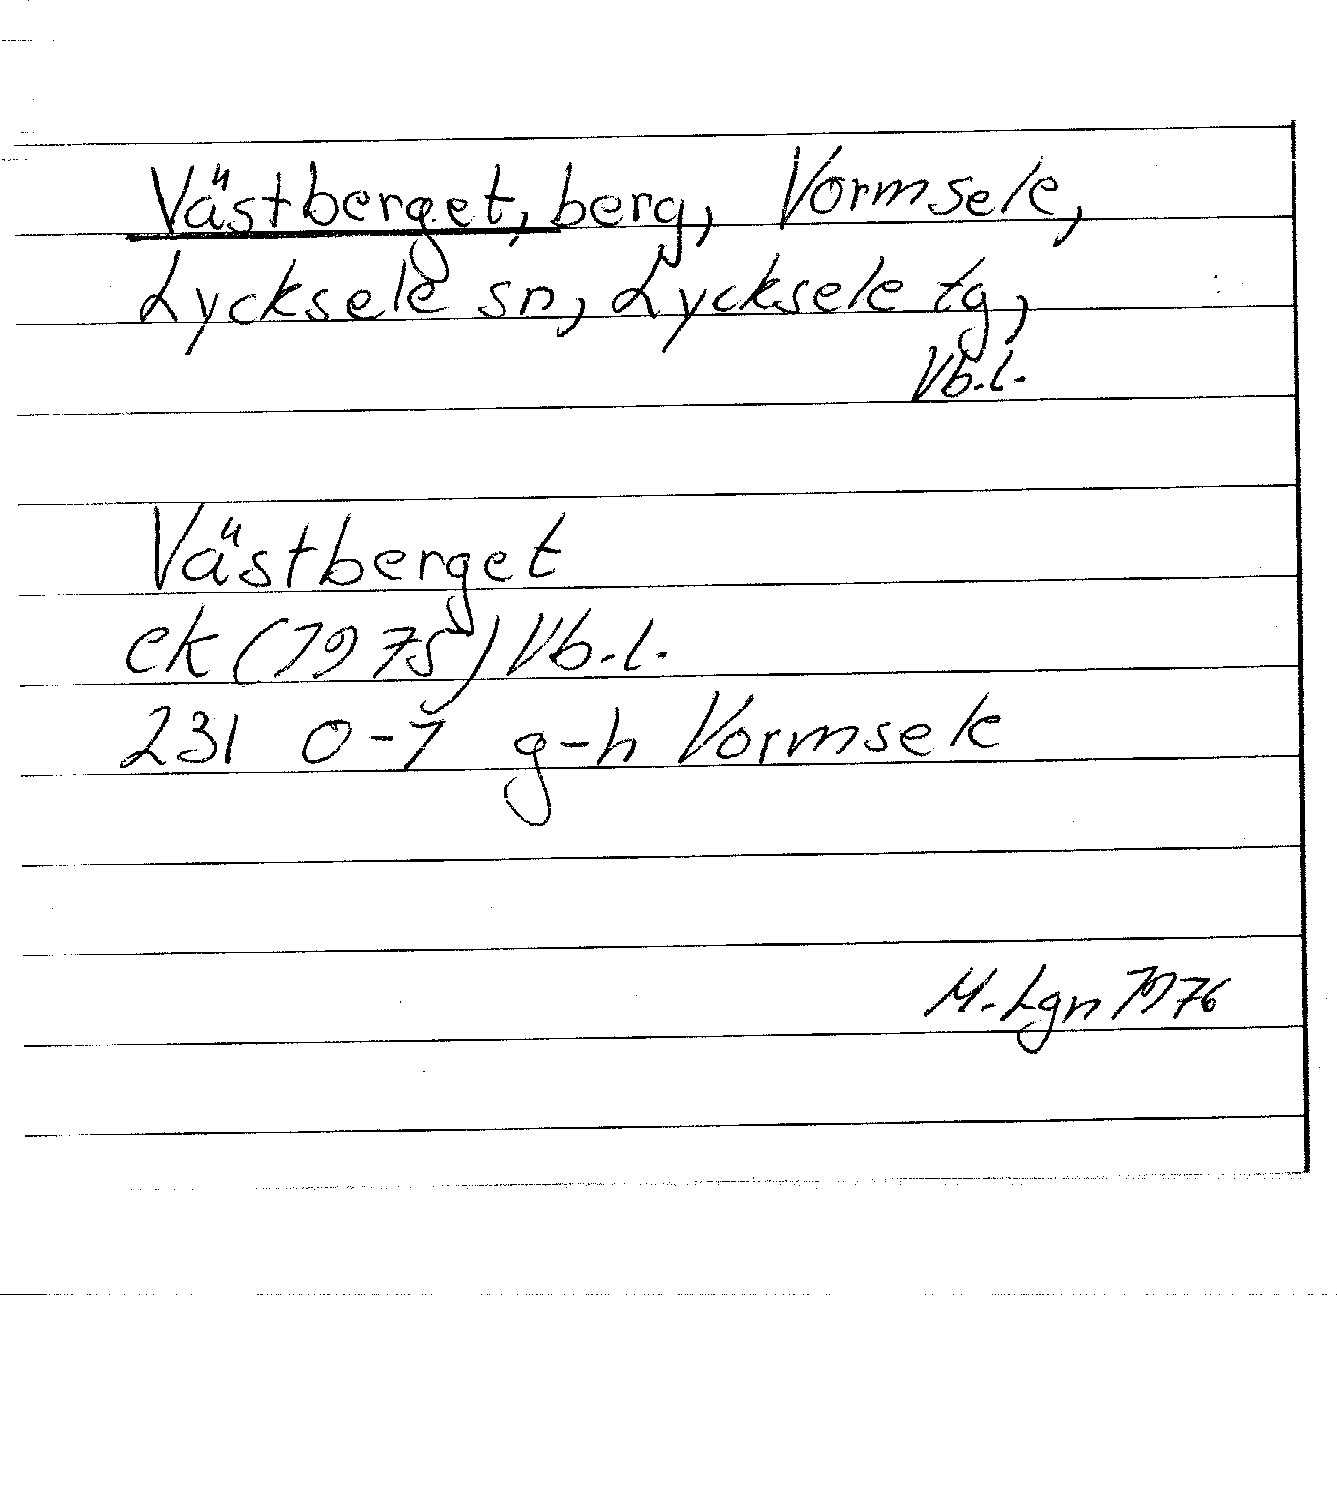 Västberget, berg, Vormsele,
Lycksele sn, Lycksele tg,
Vb.l.
Västberget
ek (1975) Vb.l.
231 0-1 g-h Vormsele
M. Lgn 1976